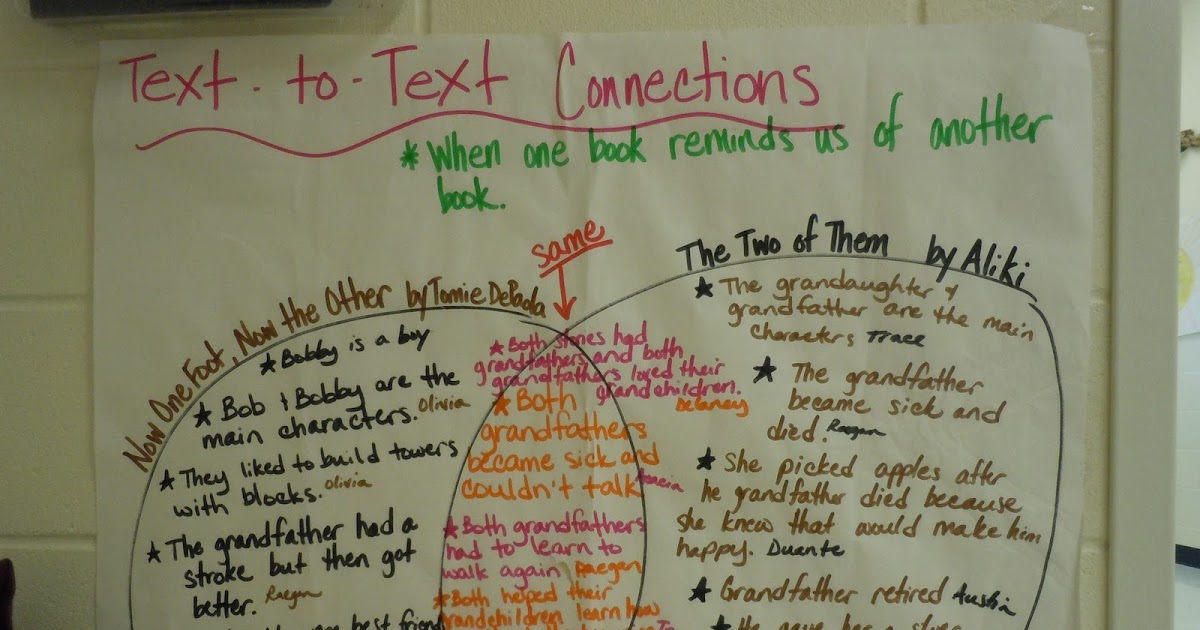 Text-to-Text Connections
* When one book reminds us of another
book.
same
Now One Foot, Now the Other by Tomie DePaola
★ Bobby is a boy
★ Bob & Bobby are the
main characters. Olivia
★ They liked to build towers
with blocks. Olivia
★ The grandfather had a
stroke but then got
better. Raegan
best friend
★ Both stories had
grandfathers and both
grandfathers loved their
grandchildren.
Delaney
★ Both
grandfathers
became sick and
couldn't talk
★ Both grandfathers
had to learn to
walk again Raegan
★ Both helped their
grandchildren learn how
The Two of Them by Aliki
★ The grandaughter &
grandfather are the main
characters Trace
★ The grandfather
became sick and
died. Raegan
★ She picked apples after
he grandfather died because
she knew that would make him
happy. Duante
★ Grandfather retired Austin
★ He gave her a